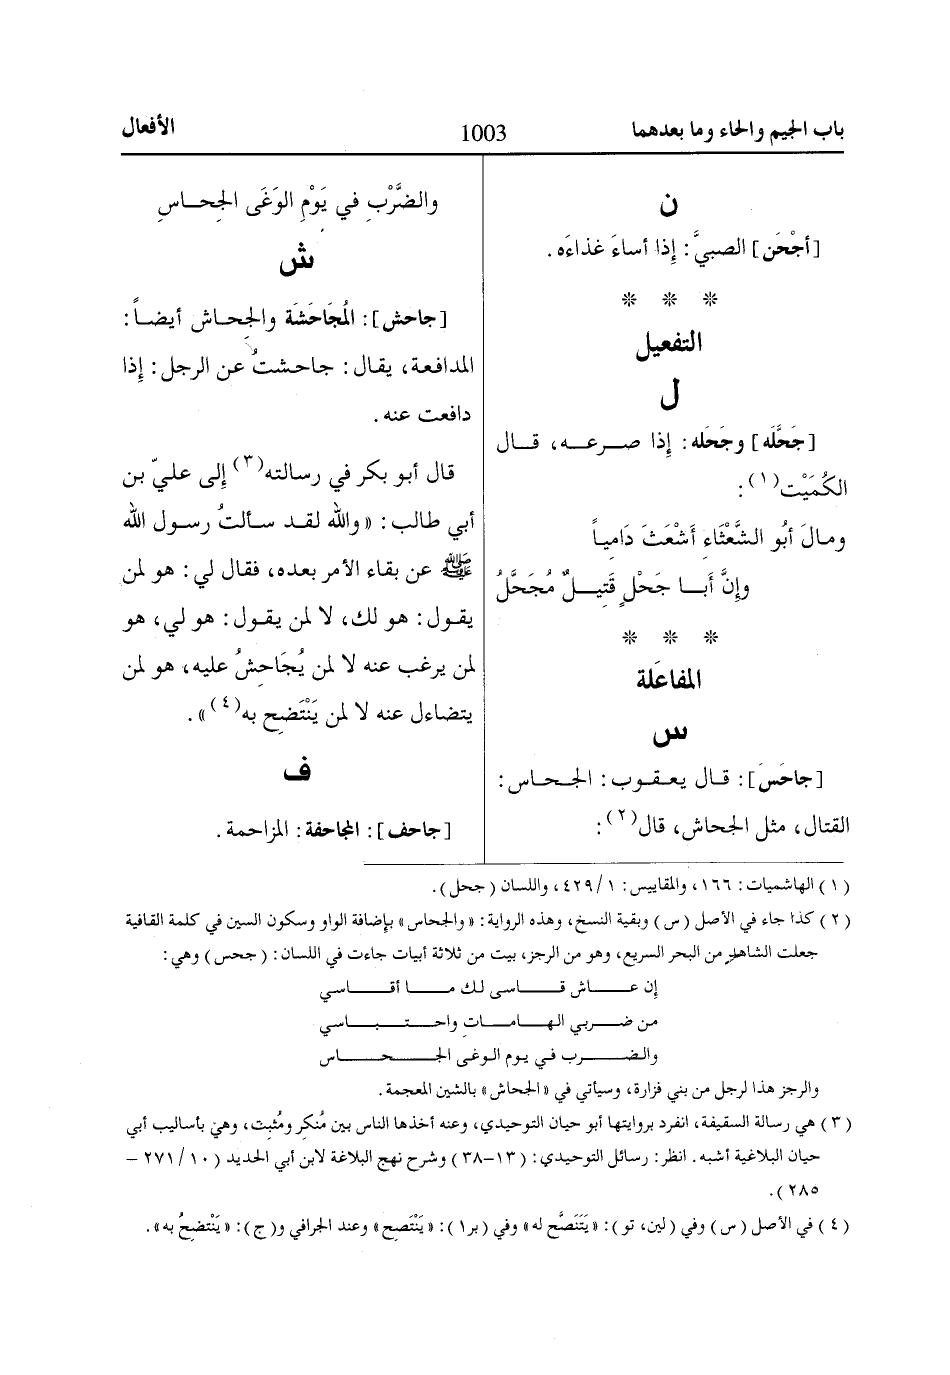 باب الجيم والحاء وما بعدهما
1003
الأفعال
ن
[أجْحَن] الصبيَّ: إِذا أساءَ غذاءَه.
* * *
التفعيل
ل
[جَحَّلَه] وجَحَله: إِذا صرعه، قال
الكُمَيْت(١):
ومالَ أبُو الشَّعْثَاء أَشْعَثَ دَامِياً
وإِنَّ أَبا جَحْلٍ قَتِيلٌ مُجَحَّلُ
* * *
المفاعَلة
س
[جاحَسَ]: قال يعقوب: الجحاس:
القتال، مثل الجحاش، قال(٢):
والضَّرْبِ في يَوْمِ الوَغَى الجِحاسِ
ش
[جاحش]: المُجَاحَشَة والجِحاش أيضاً:
المدافعة، يقال: جاحشتُ عن الرجل: إِذا
دافعت عنه.
قال أبو بكر في رسالته(٣) إِلى عليّ بن
أبي طالب: «والله لقد سألتُ رسول الله
ﷺ عن بقاء الأمر بعده، فقال لي: هو لمن
يقول: هو لك، لا لمن يقول: هو لي، هو
لمن يرغب عنه لا لمن يُجَاحِشُ عليه، هو لمن
يتضاءل عنه لا لمن يَنْتَضح به(٤)».
ف
[جاحف]: المجاحفة: المزاحمة.
(١) الهاشميات: ١٦٦، والمقاييس: ٤٢٩/١، واللسان (جحل).
(٢) كذا جاء في الأصل (س) وبقية النسخ، وهذه الرواية: «والجحاس» بإضافة الواو وسكون السين في كلمة القافية
جعلت الشاهد من البحر السريع، وهو من الرجز، بيت من ثلاثة أبيات جاءت في اللسان: (جحس) وهي:
إن عاش قاسى لك ما أقاسي
من ضربي الهامات واحتباسي
والضرب في يوم الوغى الجحاس
والرجز هذا لرجل من بني فزارة، وسيأتي في «الجحاش» بالشين المعجمة.
(٣) هي رسالة السقيفة، انفرد بروايتها أبو حيان التوحيدي، وعنه أخذها الناس بين مُنكِر ومُثبِت، وهي بأساليب أبي
حيان البلاغية أشبه. انظر: رسائل التوحيدي: (١٣-٣٨) وشرح نهج البلاغة لابن أبي الحديد (١٠/ ٢٧١ –
٢٨٥).
(٤) في الأصل (س) وفي (لين، تو): «يَتَنَصَّح له» وفي (بر١): «يَنْتَصِح» وعند الجرافي و(ج): «يَنْتضحُ به».